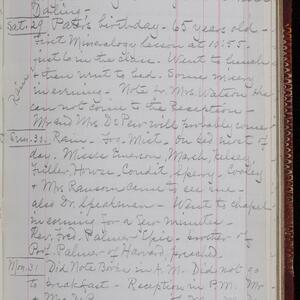 Darling -
Sat. 29 Patt's birthday - 65 years old -
First Mineralogy lesson at 10:55.
just 6 in the class. Went to lunch
& then went to bed. Some misery
in evening - Note fr Mrs. Watson she
can not come to the Reception
Mr and Mrs. will probably come
Rain
Sun. 30. Rain - Fog - Mist - On bed most of
day. Misses Emerson, March, Kelsey,
Fuller, House, Condit, Sperry, Cooley
& Mrs. Ransom came to see me -
also Dr. Speakman - Went to chapel
in evening for a few minutes -
Rev. Fred. Palmer, Epis. - brother of
Prof. Palmer of Harvard, preached.
Mon. 31 Did Note Books in A.M. Did not go
to breakfast - Reception in P.M. Mr